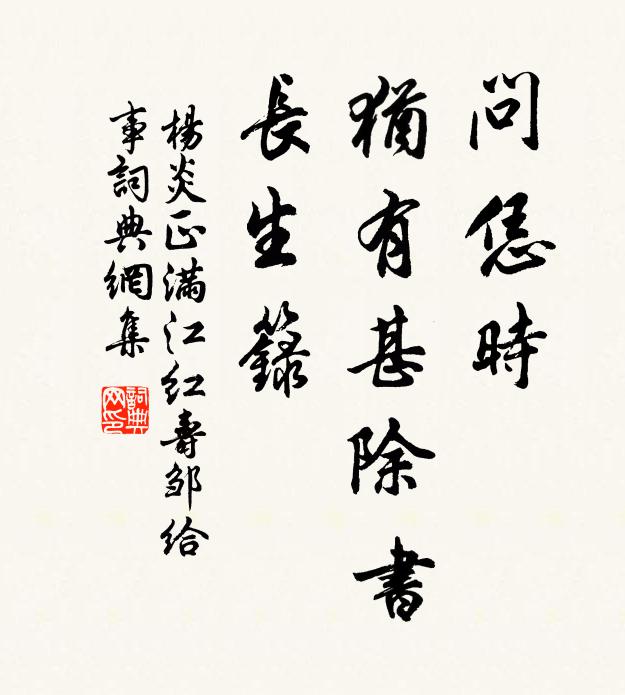 問恁時
猶有甚除書
長生籙
楊炎正満江紅壽邹给
事詞典網集
詞典网印